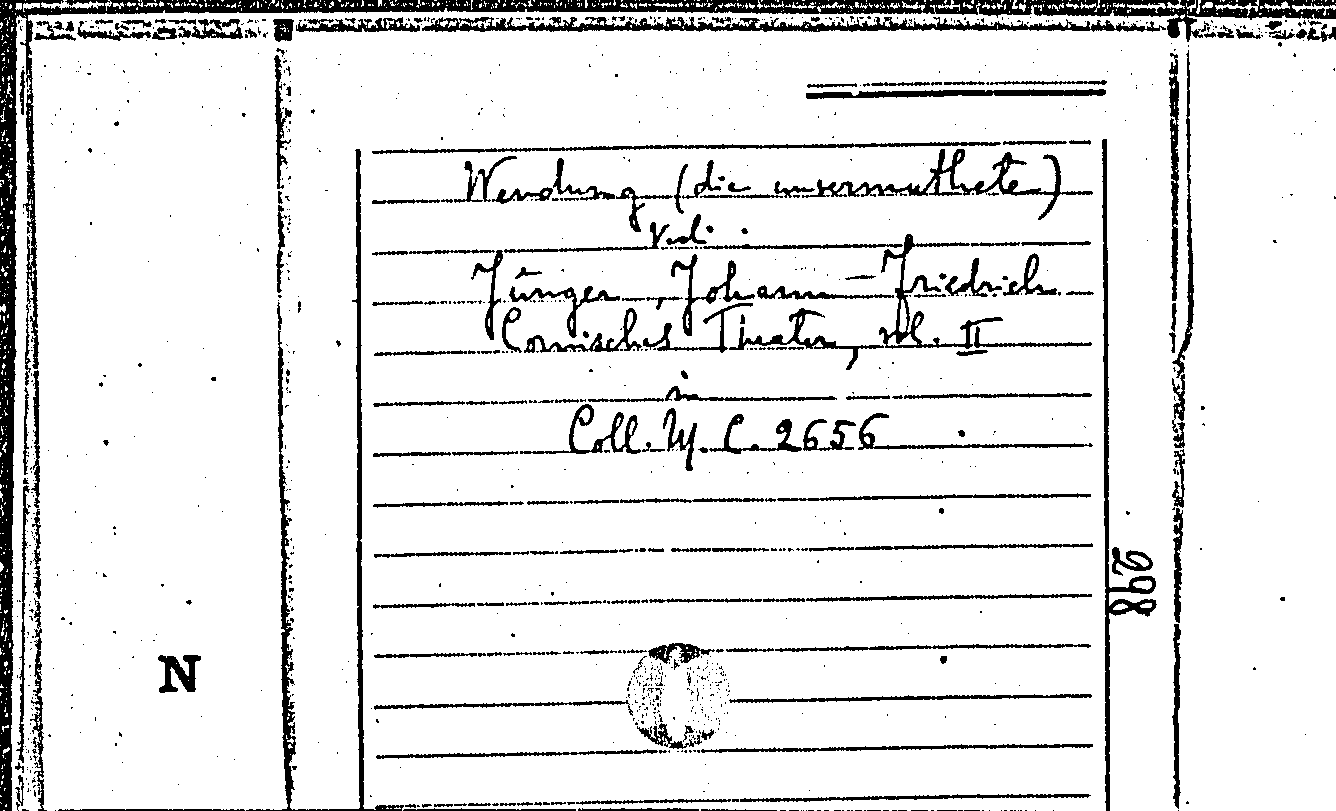 Wendung (die unvermuthete)
Vedi:
Jünger, Johann-Friedrich
Comisches Theater, vol. II
in
Coll. M. C. 2656
298
N